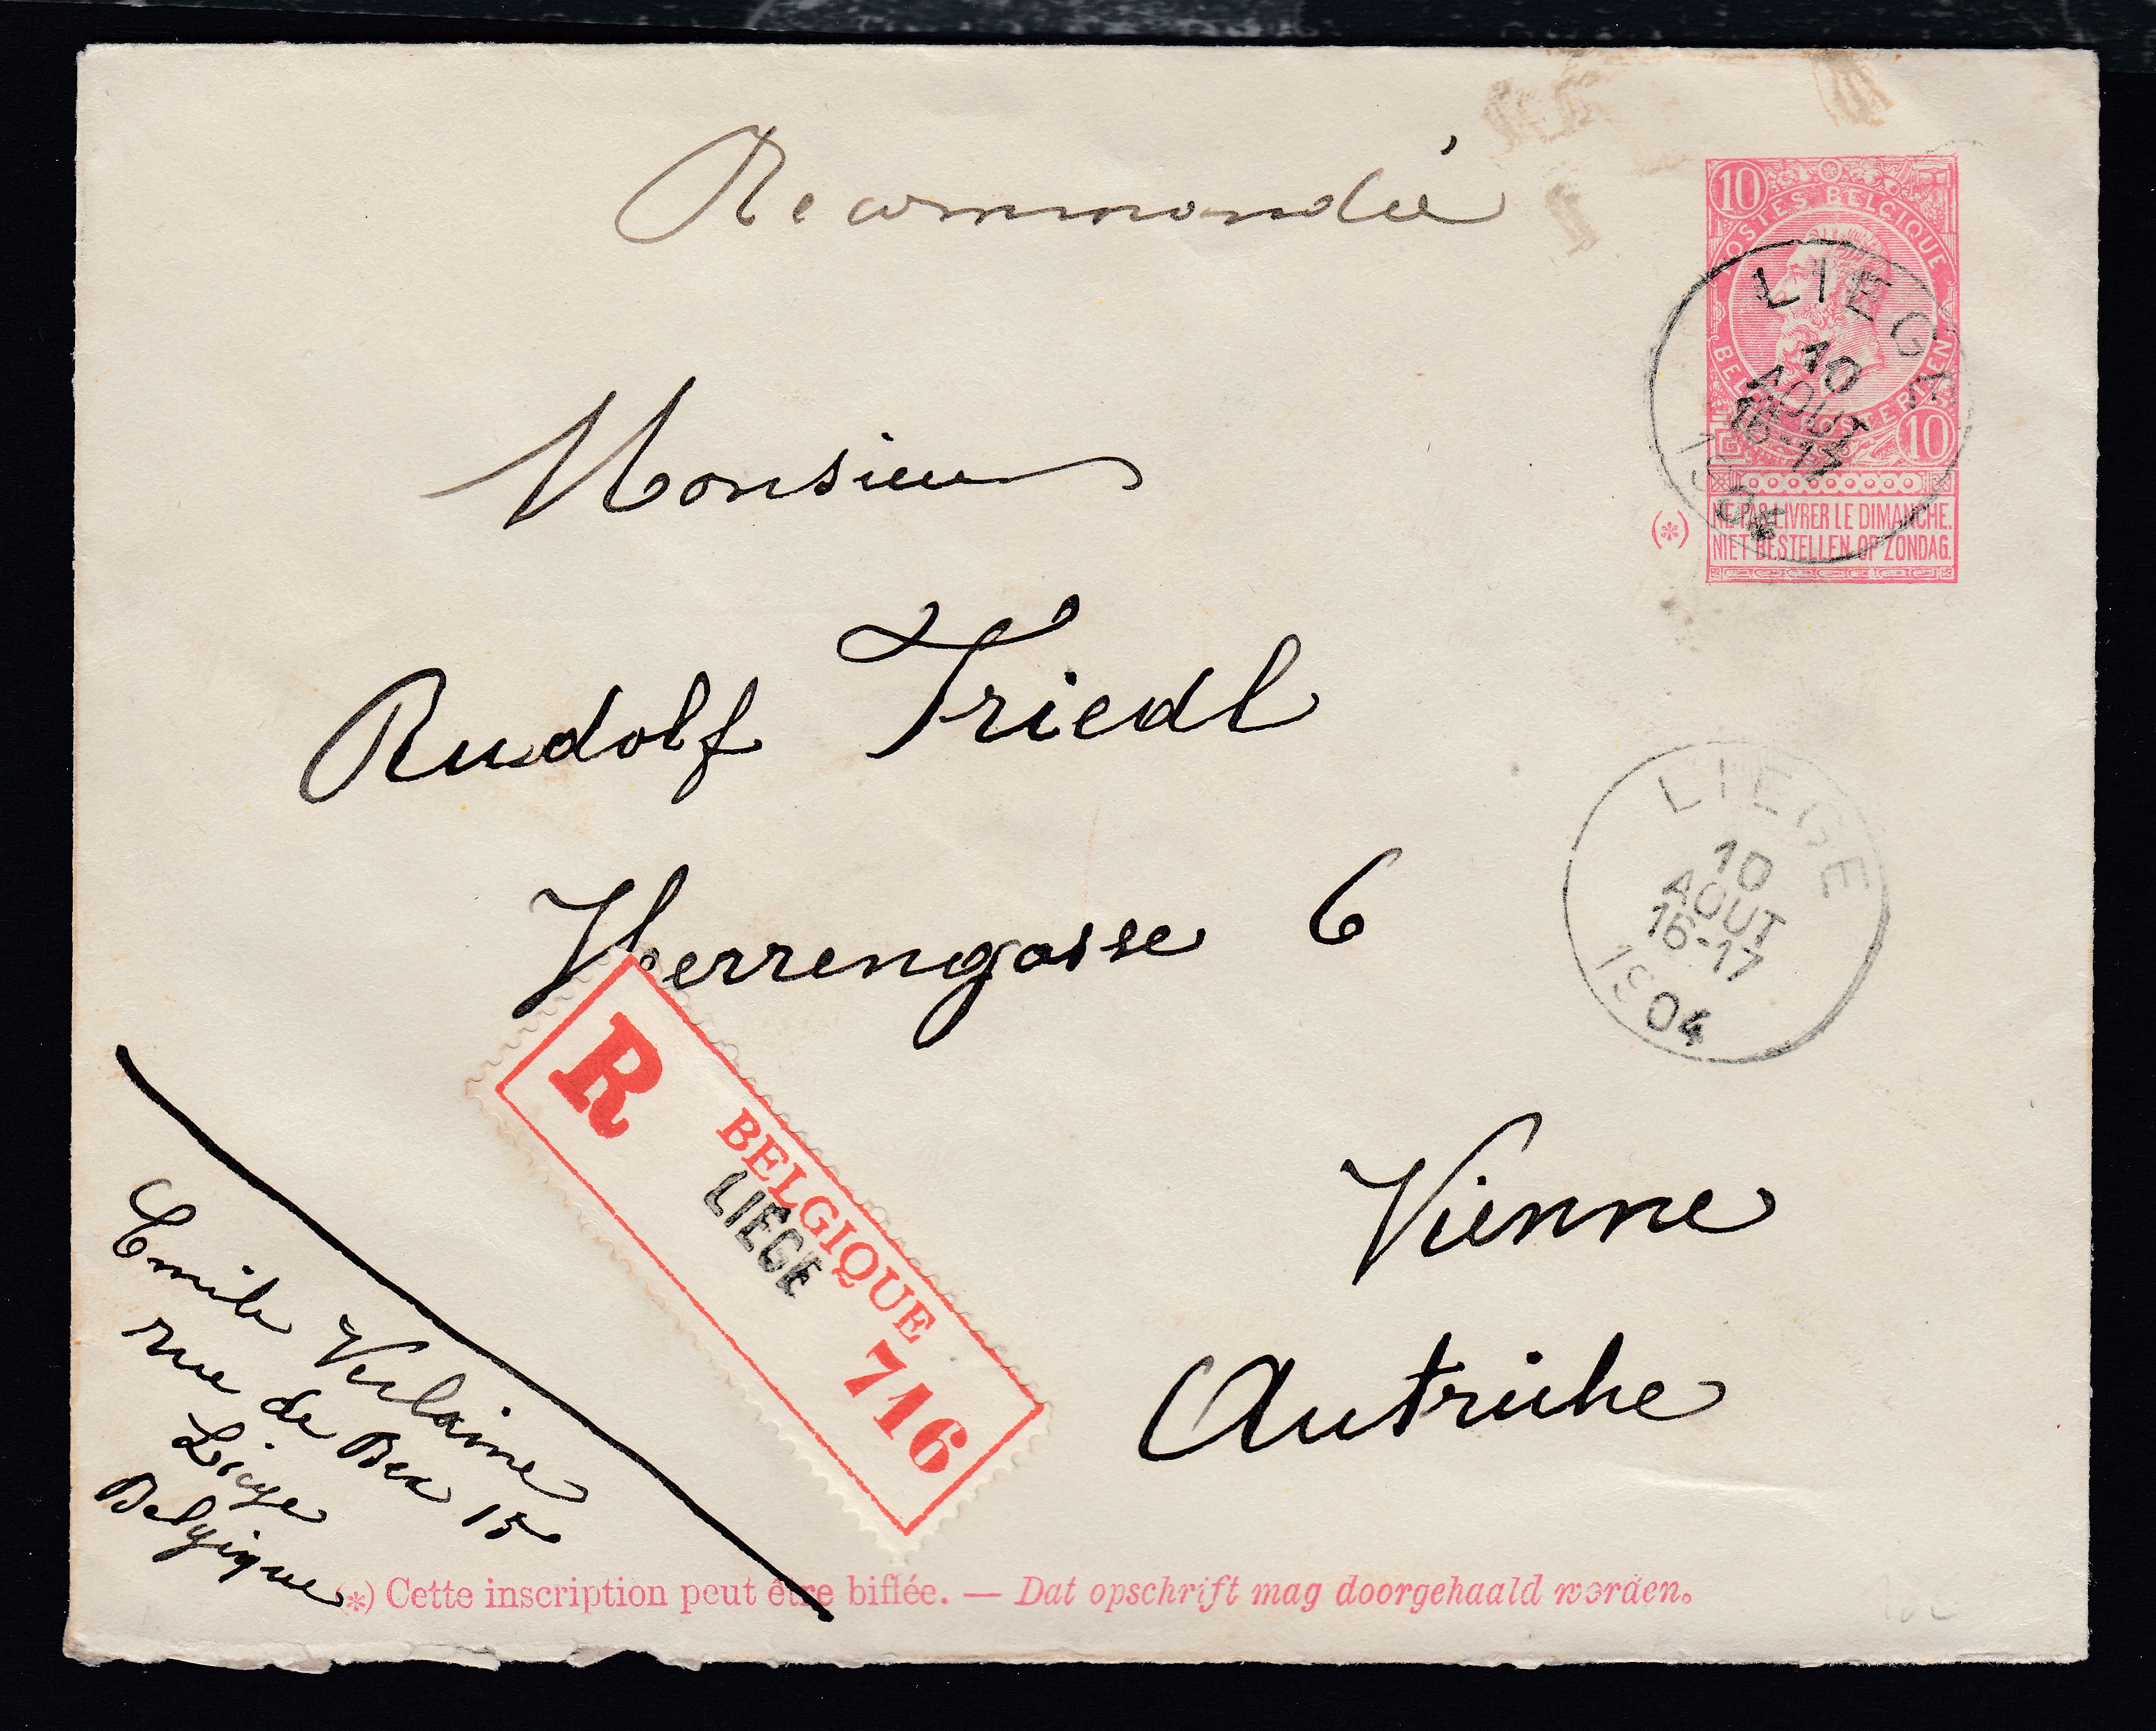 Recommandée
10
POSTES BELGIQUE
BELGIE POSTERIJEN
10
(*)
NE PAS LIVRER LE DIMANCHE.
NIET BESTELLEN OP ZONDAG.
LIEGE
10
AOUT
16-17
1904
Monsieur
Rudolf Friedl
Herrengasse 6
LIEGE
10
AOUT
16-17
1904
Vienne
Autriche
R
BELGIQUE
LIEGE
716
Emile Verlaine
rue de Bex 15
Liége
Belgique
(*) Cette inscription peut être biffée. — Dat opschrift mag doorgehaald worden.